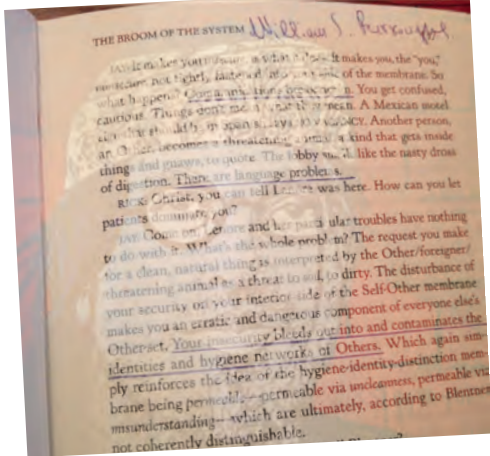 THE BROOM OF THE SYSTEM William S. Burroughs.
JAY: It makes you insecure, is what it does. It makes you, the "you,"
insecure, not tightly, fastened into your side of the membrane. So
what happens? Communications breakdown. You get confused,
cautious. Things don't mean what they mean. A Mexican motel
should in Spanish say NO VACANCY. Another person,
an Other, becomes a threatening animal, a kind that gets inside
things and gnaws, to quote. The lobby smells like the nasty dross
of digestion. There are language problems.
RICK: Christ, you can tell Lenore was here. How can you let
patients dominate you?
JAY: Come on, Lenore and her particular troubles have nothing
to do with it. What's the whole problem? The request you make
for a clean, natural thing is interpreted by the Other/foreigner/
threatening animal as a threat to soil, to dirty. The disturbance of
your security on your interior side of the Self-Other membrane
makes you an erratic and dangerous component of everyone else's
Other-set. Your insecurity bleeds out into and contaminates the
identities and hygiene networks of Others. Which again sim-
ply reinforces the idea of the hygiene-identity-distinction mem-
brane being permeable—permeable via uncleanness, permeable via
misunderstanding—which are ultimately, according to Blentner,
not coherently distinguishable.